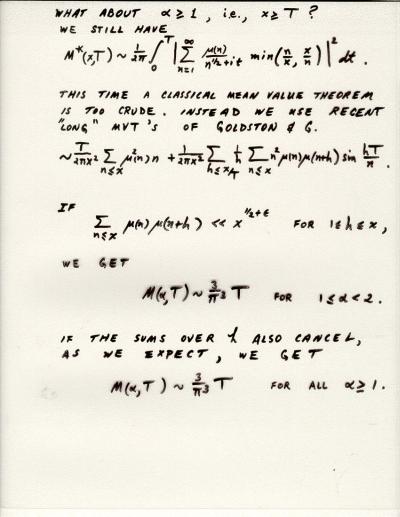 WHAT ABOUT α ≥ 1, i.e., x ≥ T ?
WE STILL HAVE
M*(x,T) ~ 1/2π ∫₀ᵀ |∑_{n=1}^{∞} μ(n)/n^{1/2+it} min(n/x, x/n)|² dt .
THIS TIME A CLASSICAL MEAN VALUE THEOREM
IS TOO CRUDE. INSTEAD WE USE RECENT
"LONG" MVT'S OF GOLDSTON & G.
~ T/2πx² ∑_{n≤x} μ²(n) n + 1/2πx² ∑_{h≤x/T} 1/h ∑_{n≤x} n² μ(n) μ(n+h) sin hT/n .
IF
∑_{n≤x} μ(n) μ(n+h) << x^{1/2+ε} FOR 1≤h≤x,
WE GET
M(α,T) ~ 3/π³ T FOR 1≤α<2.
IF THE SUMS OVER h ALSO CANCEL,
AS WE EXPECT, WE GET
M(α,T) ~ 3/π³ T FOR ALL α ≥ 1.